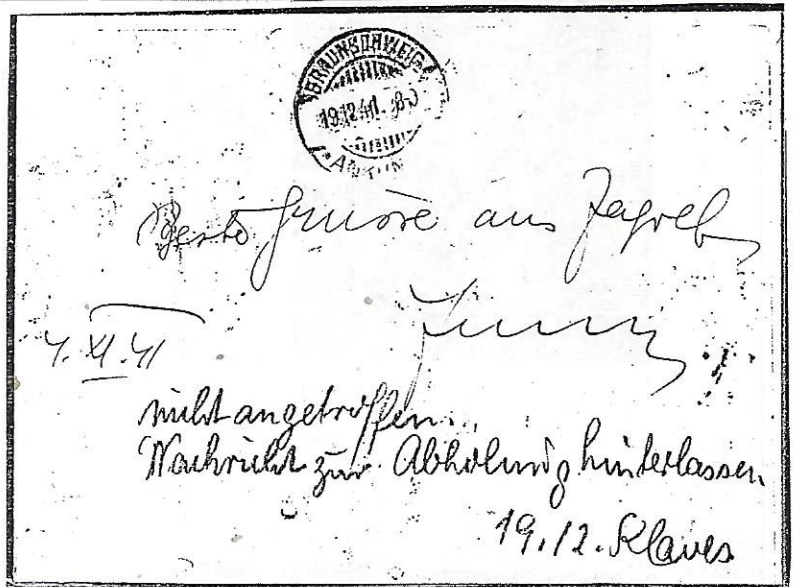 BRAUNSCHWEIG
19.12.41. 8-
Beste Grüsse aus Zagreb
4. XI. 41
nicht angetroffen.
Nachricht zur Abholung hinterlassen.
19.12. Klaves